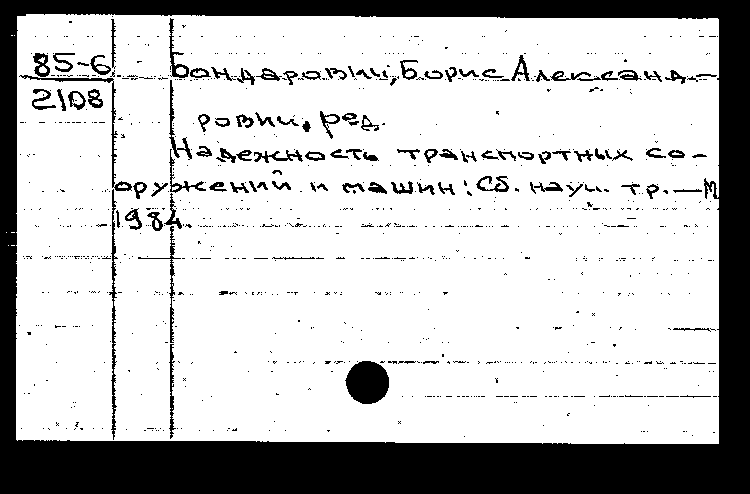 85-6 Бондарович, Борис Александ-
2108
рович, ред.
Надежность транспортных со-
оружений и машин: Сб. науч. тр.—М
1984.